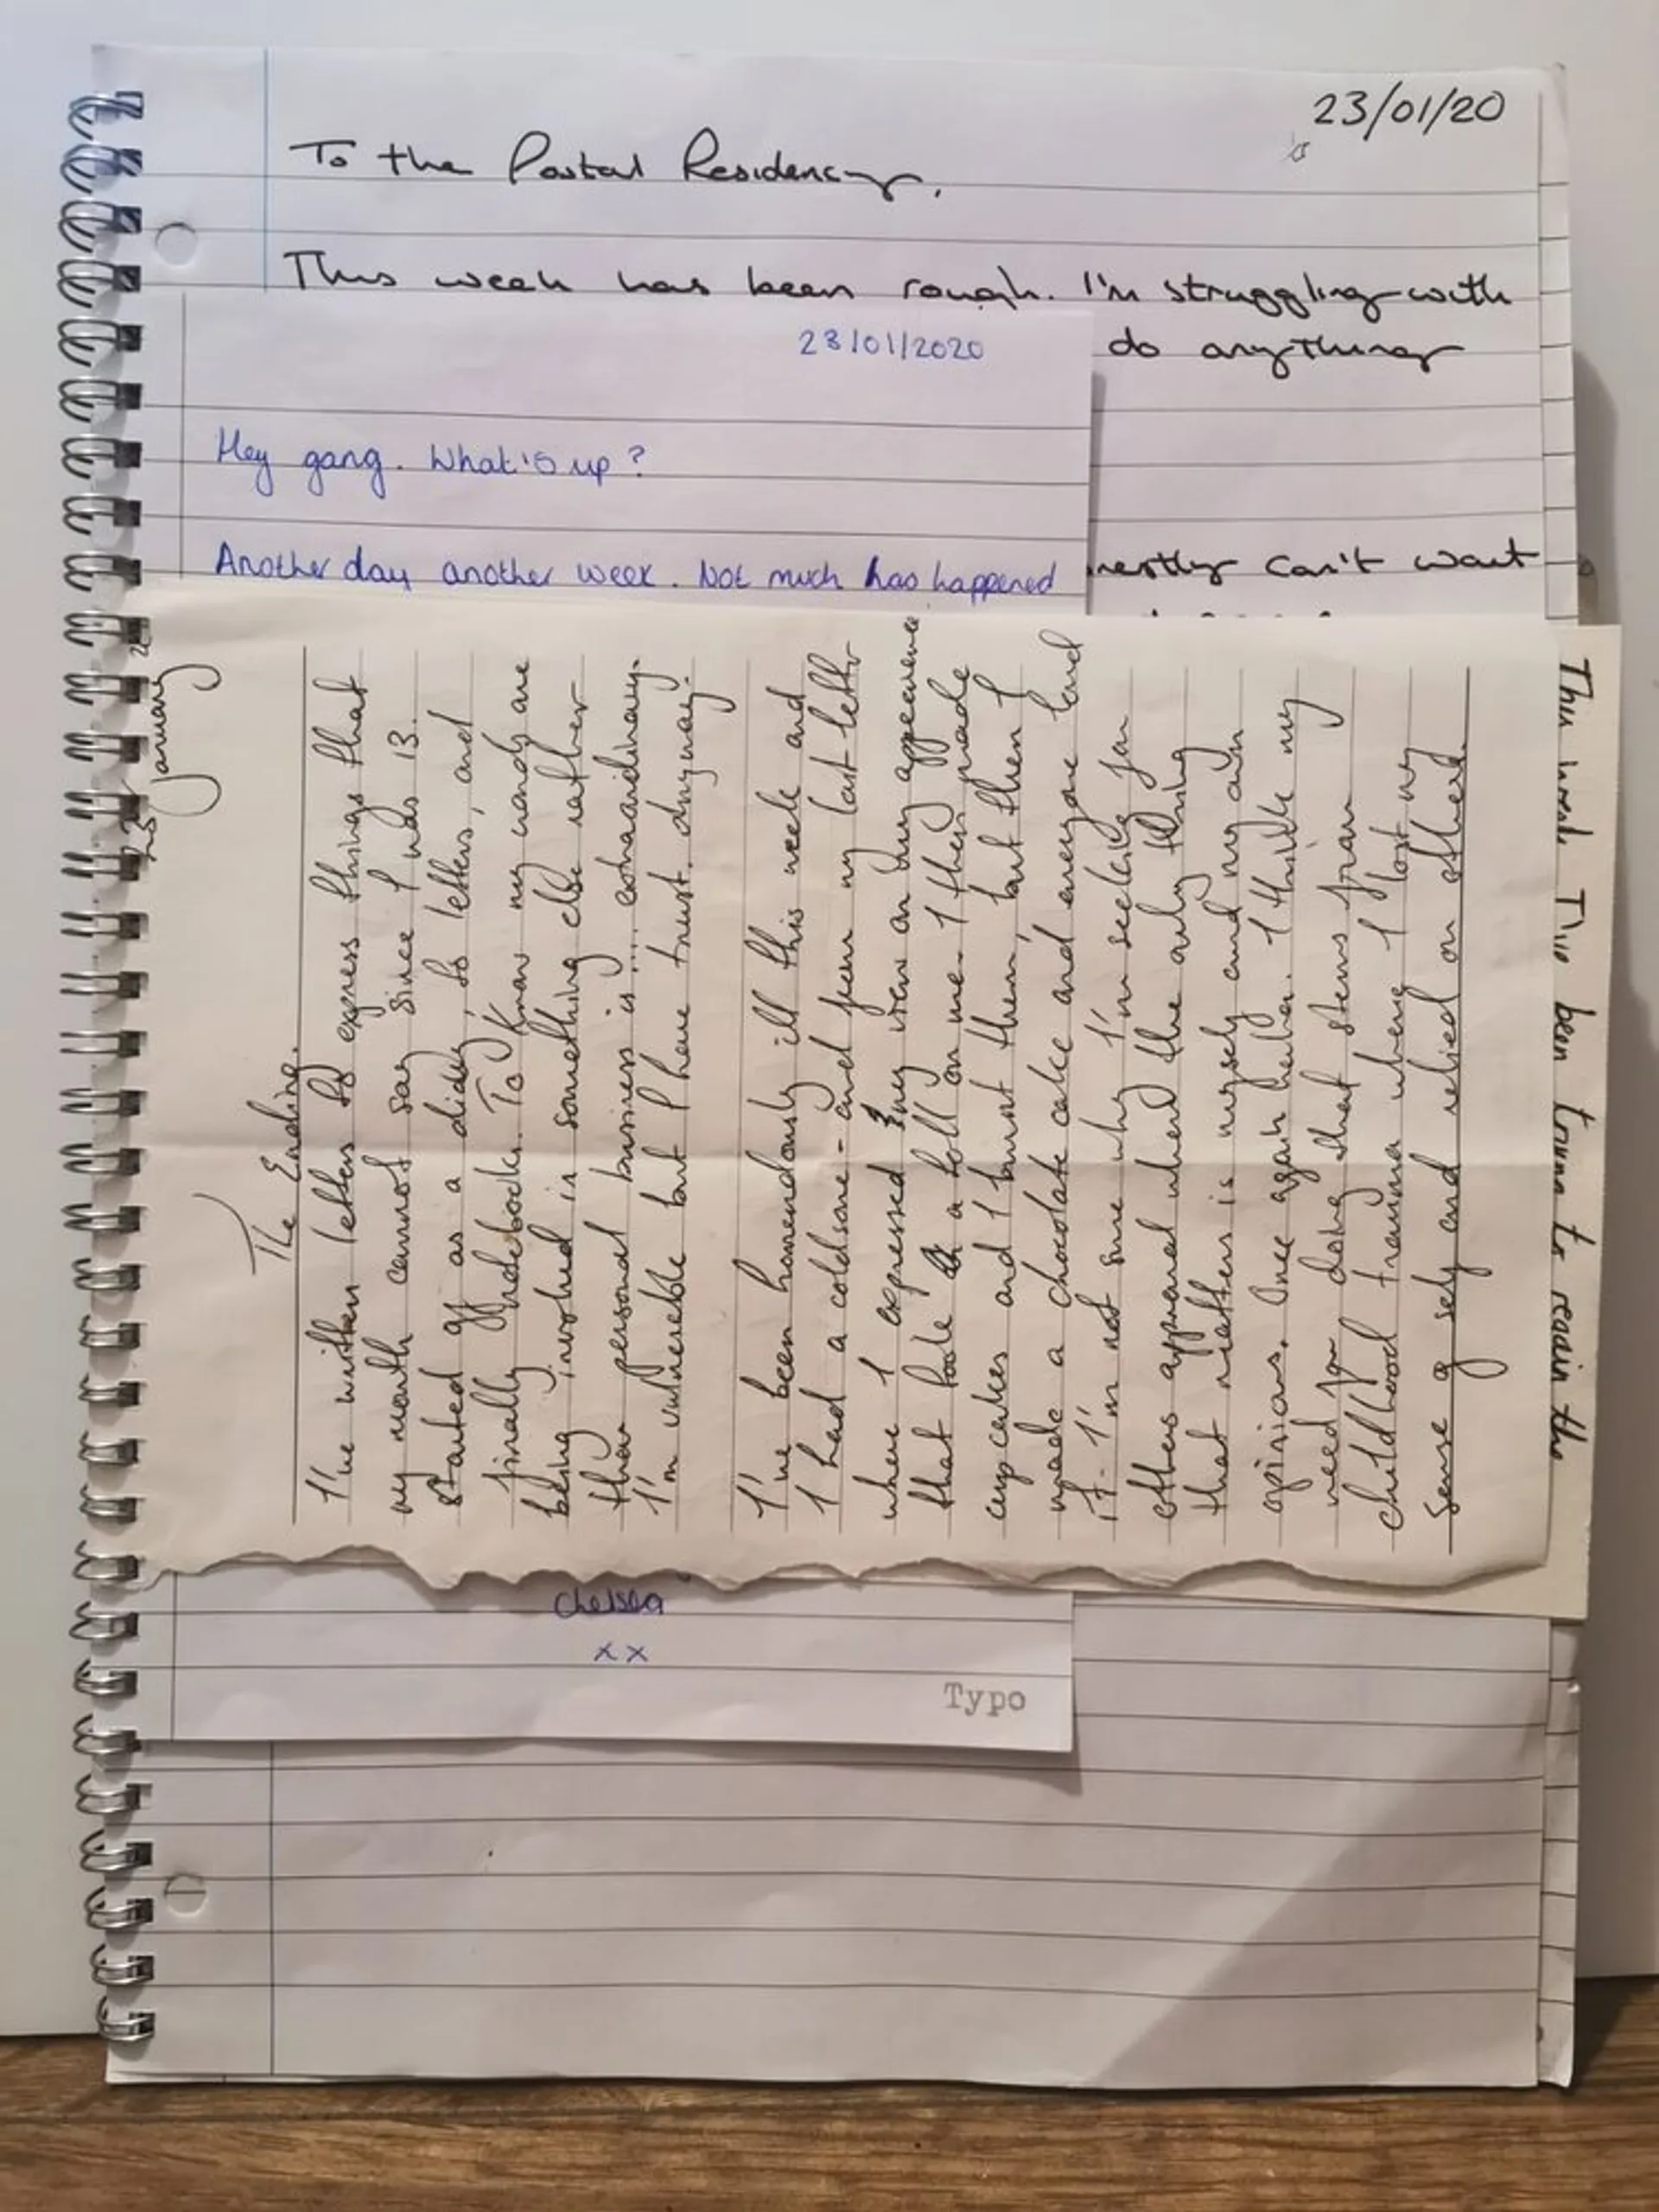 23/01/20
To the Postal Residency,
This week has been rough. I'm struggling with
do anything
can't wait
23/01/2020
Hey gang. What's up?
Another day another week. Not much has happened
Chelsea
xx
Typo
23
January
The Ending.
I've written letters to express things that
my mouth cannot say since I was 13.
Started off as a diary, to letters, and
finally notebooks. To know my words are
being involved in something else rather
than personal business is.... extraordinary.
I'm vulnerable but I have trust. Anyway.
I've been horrendously ill this week and
I had a coldsore - and from my last letter
where I expressed my view on my appearance
that took a toll on me. I then made
cupcakes and I burnt them, but then I
made a chocolate cake and everyone loved
it - I'm not sure why I'm seeking for
others approval when the only thing
that matters is myself and my own
opinions. Once again haha. I think my
need for doing that stems from
childhood trauma where I lost my
sense of self and relied on others.
This week I've been trying to regain the